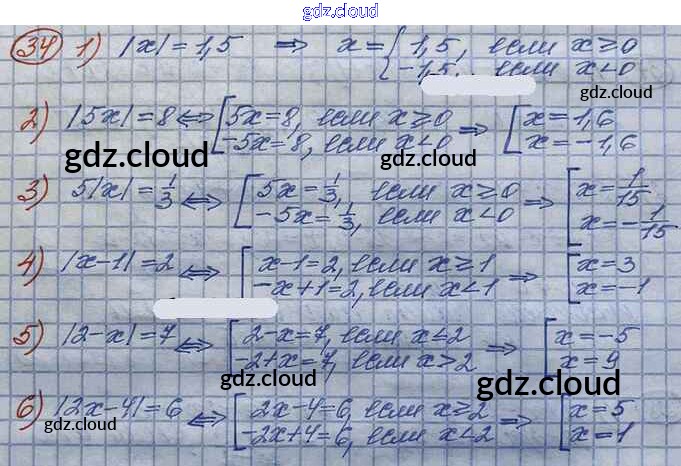 gdz.cloud
34 1) |x|=1,5 ⇒ x={1,5, если x≥0
-1,5, если x<0
gdz.cloud
2) |5x|=8 ⇔ [5x=8, если x≥0 ⇒ [x=1,6
-5x=8, если x<0 x=-1,6
gdz.cloud gdz.cloud
3) 5|x|=1/3 ⇔ [5x=1/3, если x≥0 ⇒ [x=1/15
-5x=1/3, если x<0 x=-1/15
4) |x-1|=2 ⇔ [x-1=2, если x≥1 ⇒ [x=3
-x+1=2, если x<1 x=-1
5) |2-x|=7 ⇔ [2-x=7, если x≤2 ⇒ [x=-5
-2+x=7, если x>2 x=9
gdz.cloud gdz.cloud
6) |2x-4|=6 ⇔ [2x-4=6, если x≥2 ⇒ [x=5
-2x+4=6, если x<2 x=1
gdz.cloud